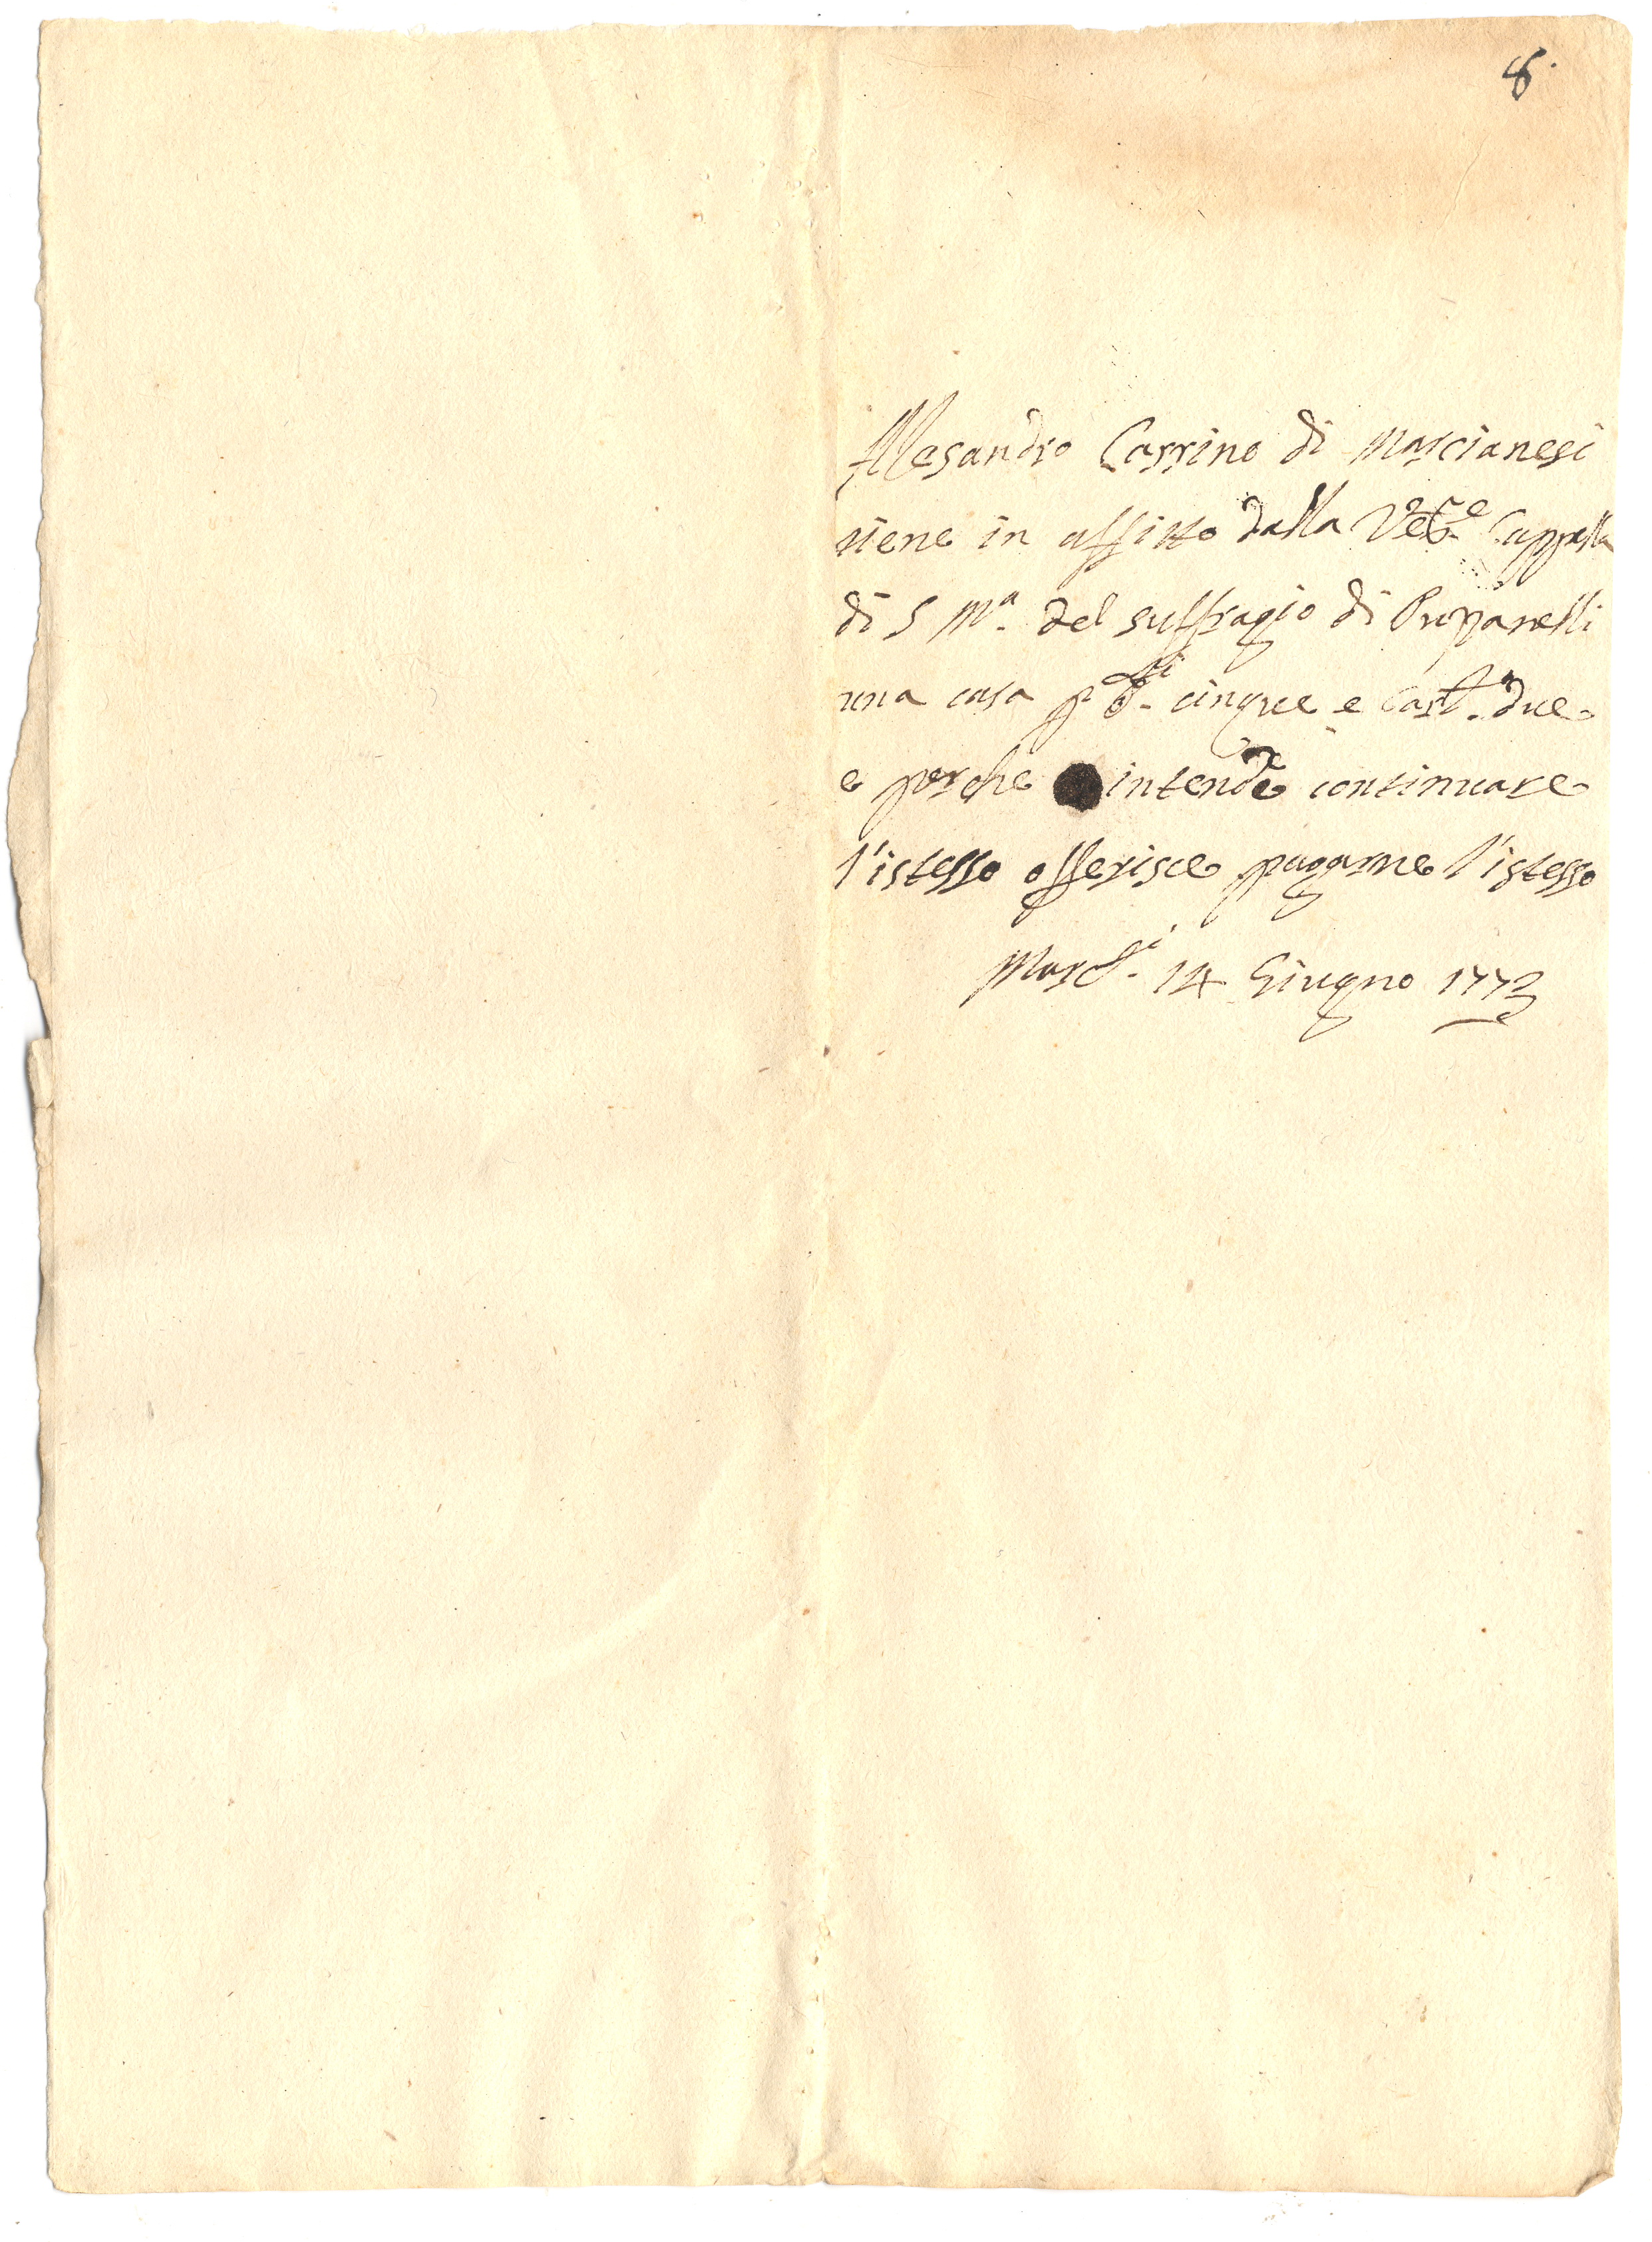 8.
Alesandro Carrino di Marcianesi
tiene in affitto dalla Vele Cappella
di S Ma. del suffragio di Purpanelli
una casa p d.ti cinque e Carl.a due
e perche intende continuare
l'istesso offerisce pagarne l'istesso
Marc.i 14 Giugno 1773